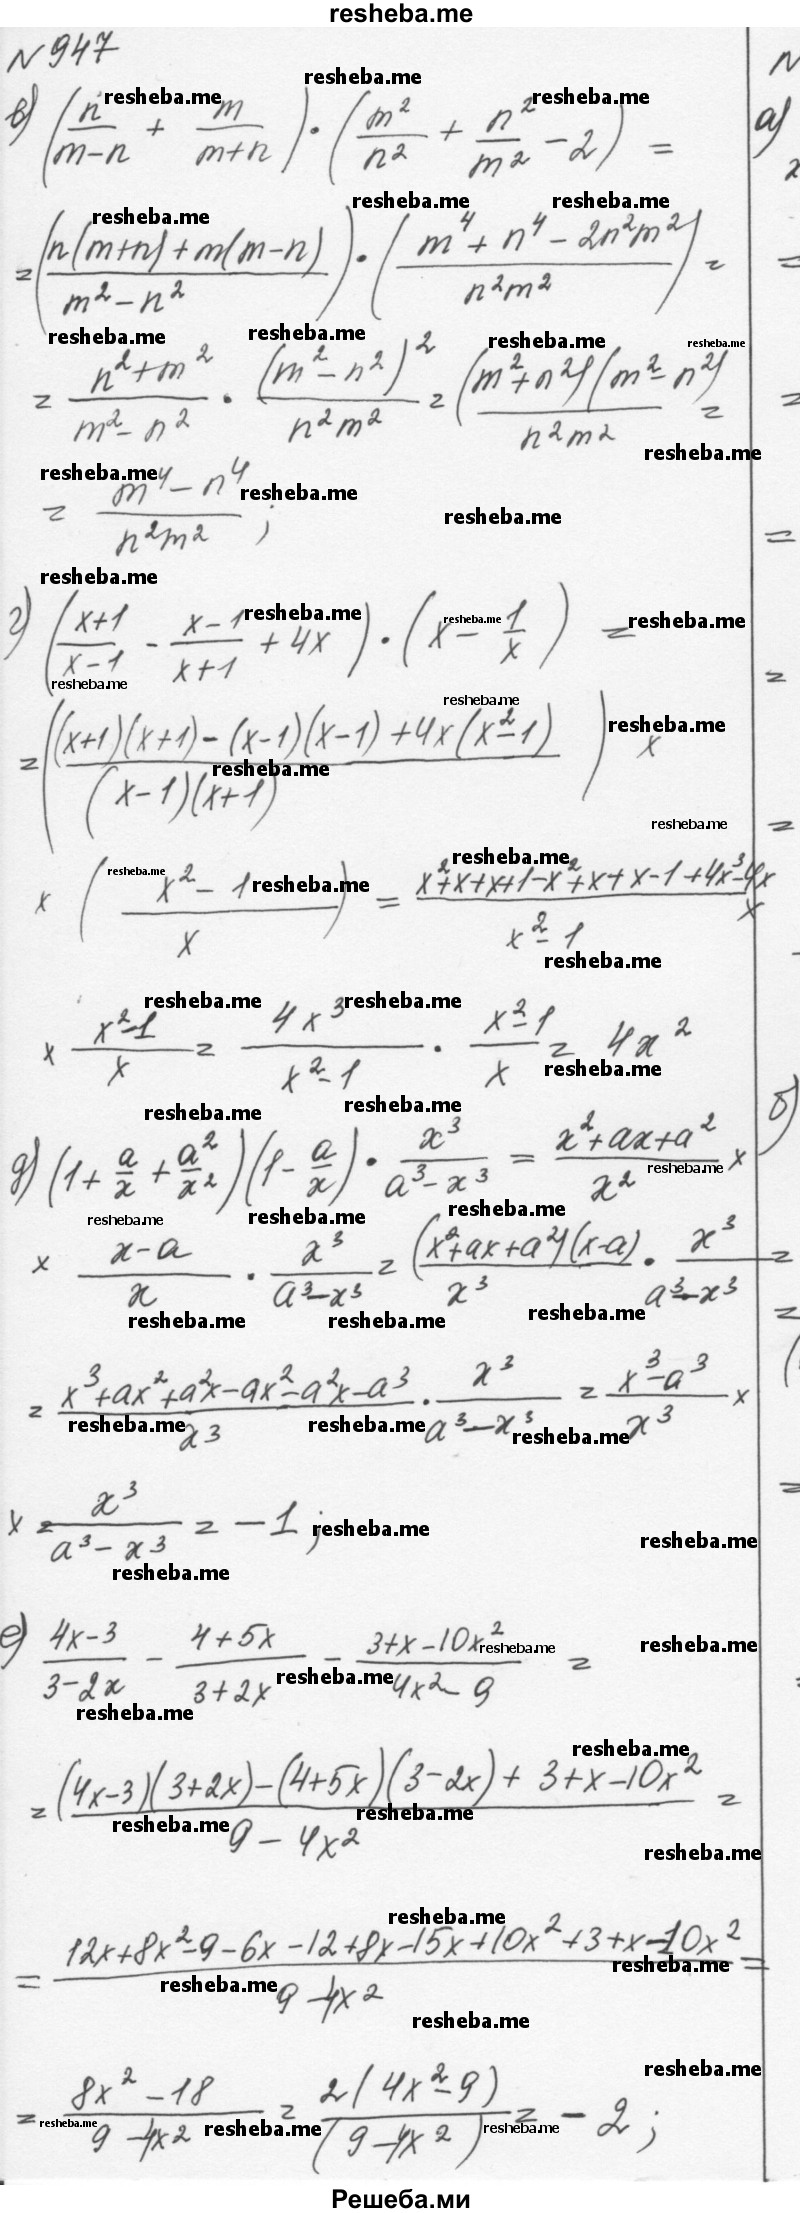 resheba.me
№947
в) (n/(m-n) + m/(m+n)) · (m²/n² + n²/m² - 2) =
= ((n(m+n)+m(m-n))/(m²-n²)) · ((m⁴+n⁴-2n²m²)/(n²m²)) =
= (n²+m²)/(m²-n²) · (m²-n²)²/(n²m²) = ((m²+n²)(m²-n²))/(n²m²) =
= (m⁴-n⁴)/(n²m²) ;
г) ((x+1)/(x-1) - (x-1)/(x+1) + 4x) · (x - 1/x) =
= (((x+1)(x+1)-(x-1)(x-1)+4x(x²-1))/((x-1)(x+1))) ×
× ((x²-1)/x) = (x²+x+x+1-x²+x+x-1+4x³-4x)/(x²-1) ×
× (x²-1)/x = 4x³/(x²-1) · (x²-1)/x = 4x²
д) (1 + a/x + a²/x²)(1 - a/x) · x³/(a³-x³) = (x²+ax+a²)/x² ×
× (x-a)/x · x³/(a³-x³) = ((x²+ax+a²)(x-a))/x³ · x³/(a³-x³) =
= (x³+ax²+a²x-ax²-a²x-a³)/x³ · x³/(a³-x³) = (x³-a³)/x³ ×
× x³/(a³-x³) = -1 ;
е) (4x-3)/(3-2x) - (4+5x)/(3+2x) - (3+x-10x²)/(4x²-9) =
= ((4x-3)(3+2x)-(4+5x)(3-2x)+3+x-10x²)/(9-4x²) =
= (12x+8x²-9-6x-12+8x-15x+10x²+3+x-10x²)/(9-4x²) =
= (8x²-18)/(9-4x²) = 2(4x²-9)/(9-4x²) = -2 ;
Решеба.ми